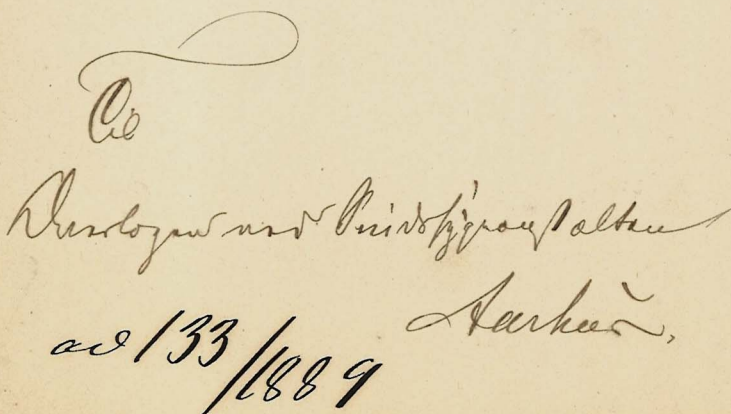 Til
Overlægen ved Sindssygeanstalten
Aarhus.
ad 133/1889